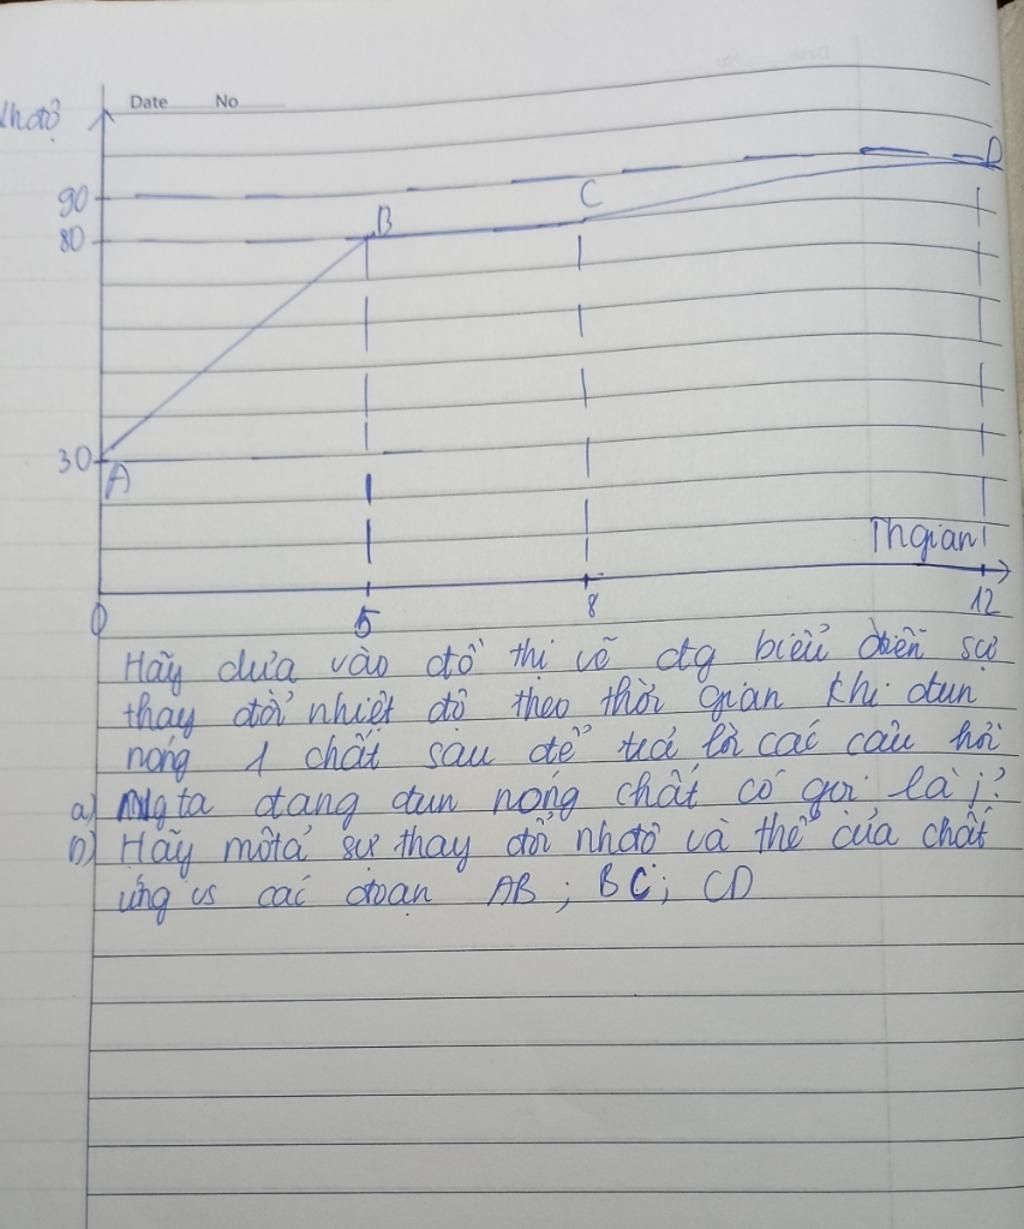 Date No
Nhđộ
90
80
B
C
D
30
A
Thgian
0
5
8
12
Hãy dựa vào đồ thị vẽ đg biểu diễn sự
thay đổi nhiệt độ theo thời gian khi đun
nóng 1 chất sau để trả lời các câu hỏi
a) Ngta đang đun nóng chất có gọi là j?
b) Hãy mô tả sự thay đổi nhđộ và thể của chất
ứng vs các đoạn AB ; BC ; CD